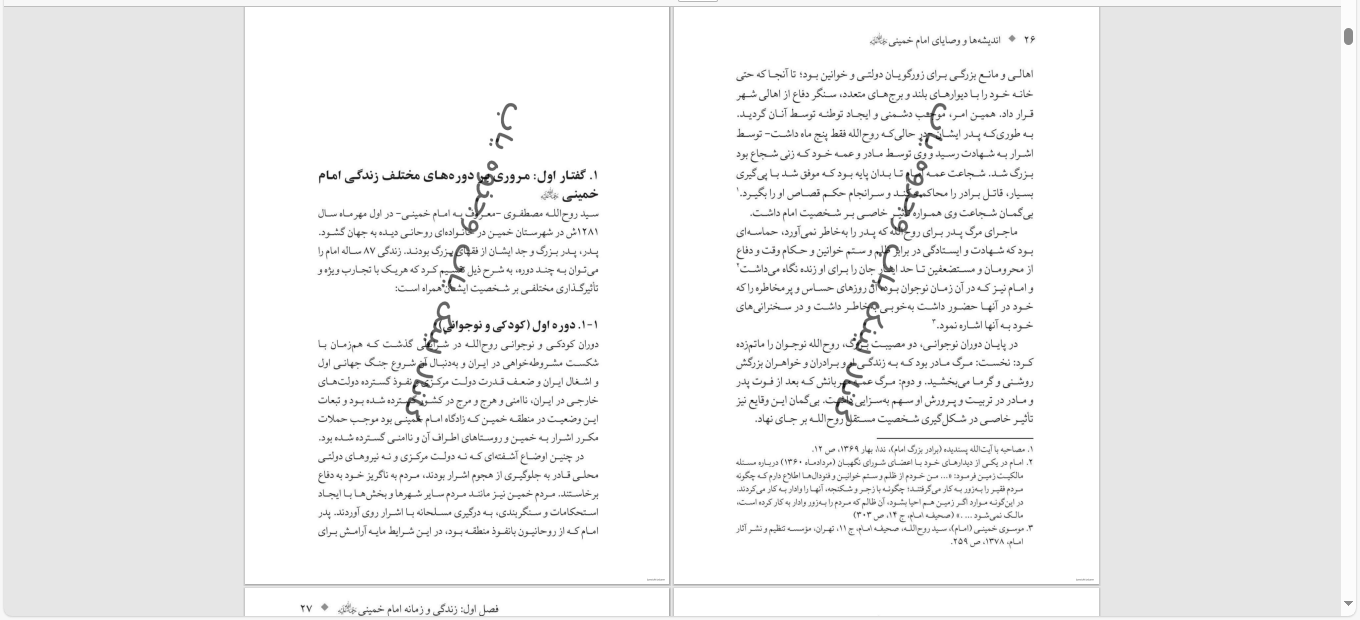 ۱. گفتار اول: مروری بر دوره‌های مختلف زندگی امام
خمینی
سید روح‌الله مصطفوی -معروف به امام خمینی- در اول مهرماه سال
۱۲۸۱ش در شهرستان خمین در خانواده‌ای روحانی دیده به جهان گشود.
پدر، پدر بزرگ و جد ایشان از فقهای بزرگ بودند. زندگی ۸۷ ساله امام را
می‌توان به چند دوره، به شرح ذیل تقسیم کرد که هریک با تجارب ویژه و
تأثیرگذاری مختلفی بر شخصیت ایشان همراه است:
۱-۱. دوره اول (کودکی و نوجوانی)
دوران کودکی و نوجوانی روح‌الله در شرایطی گذشت که هم‌زمان با
شکست مشروطه‌خواهی در ایران و به‌دنبال آن شروع جنگ جهانی اول
و اشغال ایران و ضعف قدرت دولت مرکزی و نفوذ گسترده دولت‌های
خارجی در ایران، ناامنی و هرج و مرج در کشور گسترده شده بود و تبعات
این وضعیت در منطقه خمین که زادگاه امام خمینی بود موجب حملات
مکرر اشرار به خمین و روستاهای اطراف آن و ناامنی گسترده شده بود.
در چنین اوضاع آشفته‌ای که نه دولت مرکزی و نه نیروهای دولتی
محلی قادر به جلوگیری از هجوم اشرار بودند، مردم به ناگریز خود به دفاع
برخاستند. مردم خمین نیز مانند مردم سایر شهرها و بخش‌ها با ایجاد
استحکامات و سنگربندی، به درگیری مسلحانه با اشرار روی آوردند. پدر
امام که از روحانیون بانفوذ منطقه بود، در این شرایط مایه آرامش برای
۲۶ ◆ اندیشه‌ها و وصایای امام خمینی
اهالی و مانع بزرگی برای زورگویان دولتی و خوانین بود؛ تا آنجا که حتی
خانه خود را با دیوارهای بلند و برج‌های متعدد، سنگر دفاع از اهالی شهر
قرار داد. همین امر، موجب دشمنی و ایجاد توطئه توسط آنان گردید.
به طوری‌که پدر ایشان در حالی‌که روح‌الله فقط پنج ماه داشت- توسط
اشرار به شهادت رسید و وی توسط مادر و عمه خود که زنی شجاع بود
بزرگ شد. شجاعت عمه امام تا بدان پایه بود که موفق شد با پی‌گیری
بسیار، قاتل برادر را محاکمه کند و سرانجام حکم قصاص او را بگیرد.۱
بی‌گمان شجاعت وی همواره تأثیر خاصی بر شخصیت امام داشت.
ماجرای مرگ پدر برای روح‌الله که پدر را به‌خاطر نمی‌آورد، حماسه‌ای
بود که شهادت و ایستادگی در برابر ظلم و ستم خوانین و حکام وقت و دفاع
از محرومان و مستضعفین تا حد ایثار جان را برای او زنده نگاه می‌داشت۲
و امام نیز که در آن زمان نوجوان بود، آن روزهای حساس و پرمخاطره را که
خود در آنها حضور داشت به‌خوبی به‌خاطر داشت و در سخنرانی‌های
خود به آنها اشاره نمود.۳
در پایان دوران نوجوانی، دو مصیبت بزرگ، روح‌الله نوجوان را ماتم‌زده
کرد: نخست: مرگ مادر بود که به زندگی او و برادران و خواهران بزرگش
روشنی و گرما می‌بخشید. و دوم: مرگ عمه مهربانش که بعد از فوت پدر
و مادر در تربیت و پرورش او سهم به‌سزایی داشت. بی‌گمان این وقایع نیز
تأثیر خاصی در شکل‌گیری شخصیت مستقل روح‌الله بر جای نهاد.
۱. مصاحبه با آیت‌الله پسندیده (برادر بزرگ امام)، ندا، بهار ۱۳۶۹، ص ۱۲.
۲. امام در یکی از دیدارهای خود با اعضای شورای نگهبان (مردادماه ۱۳۶۰) درباره مسئله
مالکیت زمین فرمود: «... من خودم از ظلم و ستم خوانین و فئودال‌ها اطلاع دارم که چگونه
مردم فقیر را به‌زور به کار می‌گرفتند؛ چگونه با زجر و شکنجه، آنها را وادار به کار می‌کردند.
در این‌گونه موارد اگر زمین هم احیا بشود، آن ظالم که مردم را به‌زور وادار به کار کرده است،
مالک نمی‌شود ... .» (صحیفه امام، ج ۱۴، ص ۳۰۳)
۳. موسوی خمینی (امام)، سید روح‌الله، صحیفه امام، ج ۱۱، تهران، مؤسسه تنظیم و نشر آثار
امام، ۱۳۷۸، ص ۲۵۹.
فصل اول: زندگی و زمانه امام خمینی ◆ ۲۷